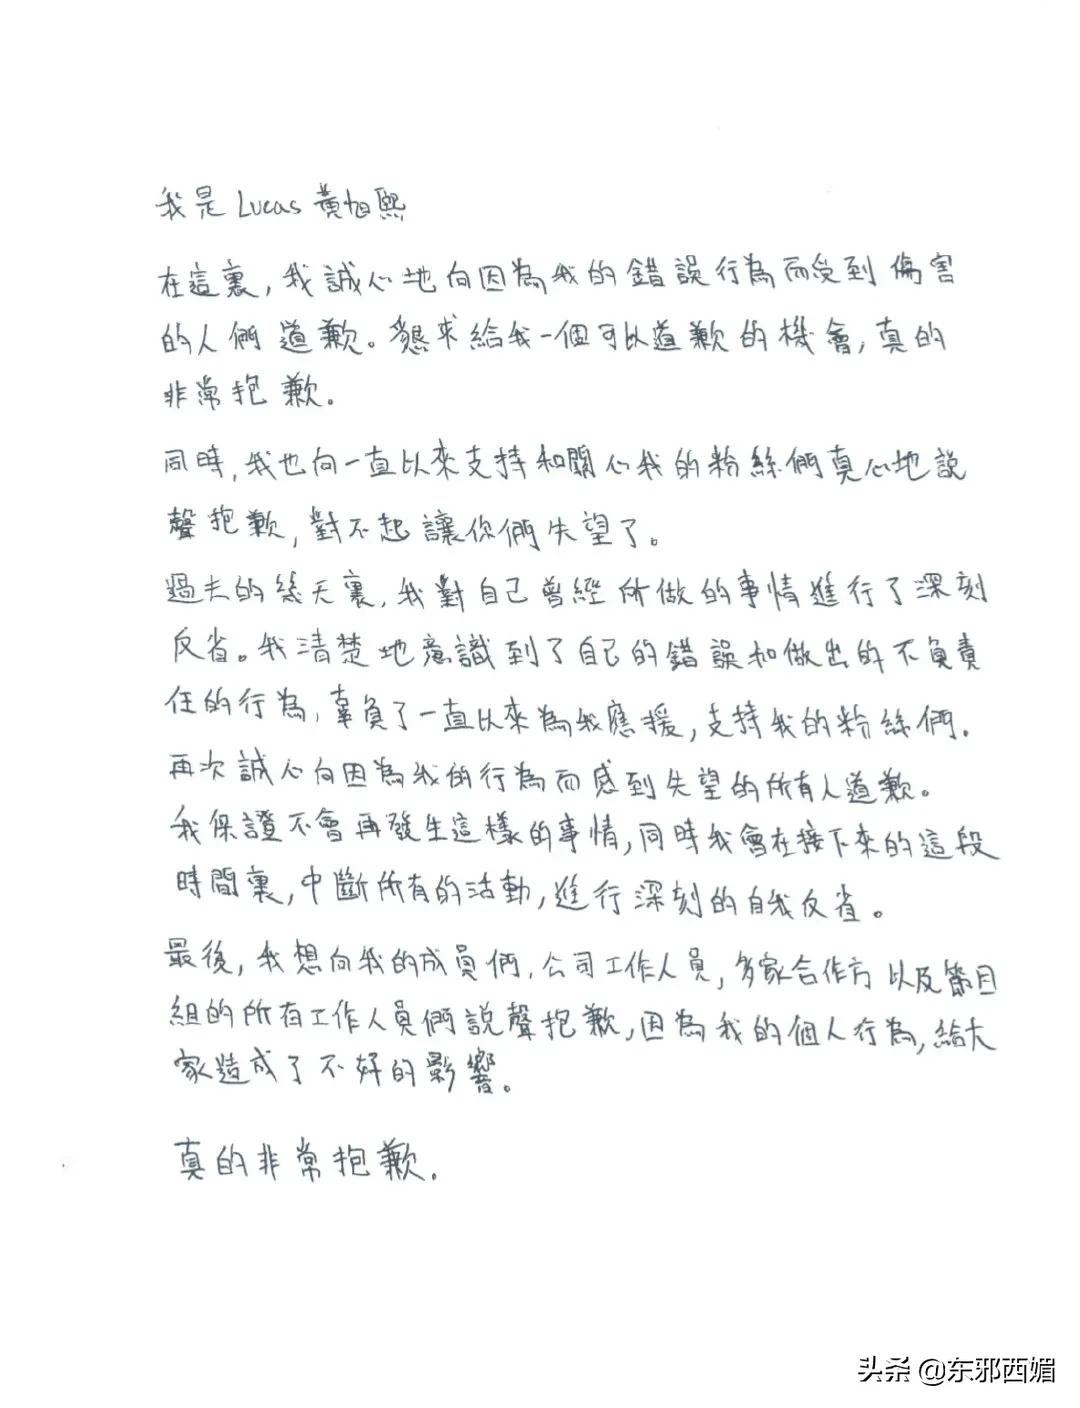 我是Lucas 黃旭熙
在這裏,我誠心地向因為我的錯誤行為而受到傷害
的人們道歉。懇求給我一個可以道歉的機會,真的
非常抱歉。
同時,我也向一直以來支持和關心我的粉絲們真心地說
聲抱歉,對不起讓你們失望了。
過去的幾天裏,我對自己曾經所做的事情進行了深刻
反省。我清楚地意識到了自己的錯誤和做出的不負責
任的行為,辜負了一直以來為我應援,支持我的粉絲們.
再次誠心向因為我的行為而感到失望的所有人道歉。
我保證不會再發生這樣的事情,同時我會在接下來的這段
時間裏,中斷所有的活動,進行深刻的自我反省。
最後,我想向我的成員們,公司工作人員,多家合作方以及節目
組的所有工作人員們說聲抱歉,因為我的個人行為,給大
家造成了不好的影響。
真的非常抱歉.
头条 @东邪西媚